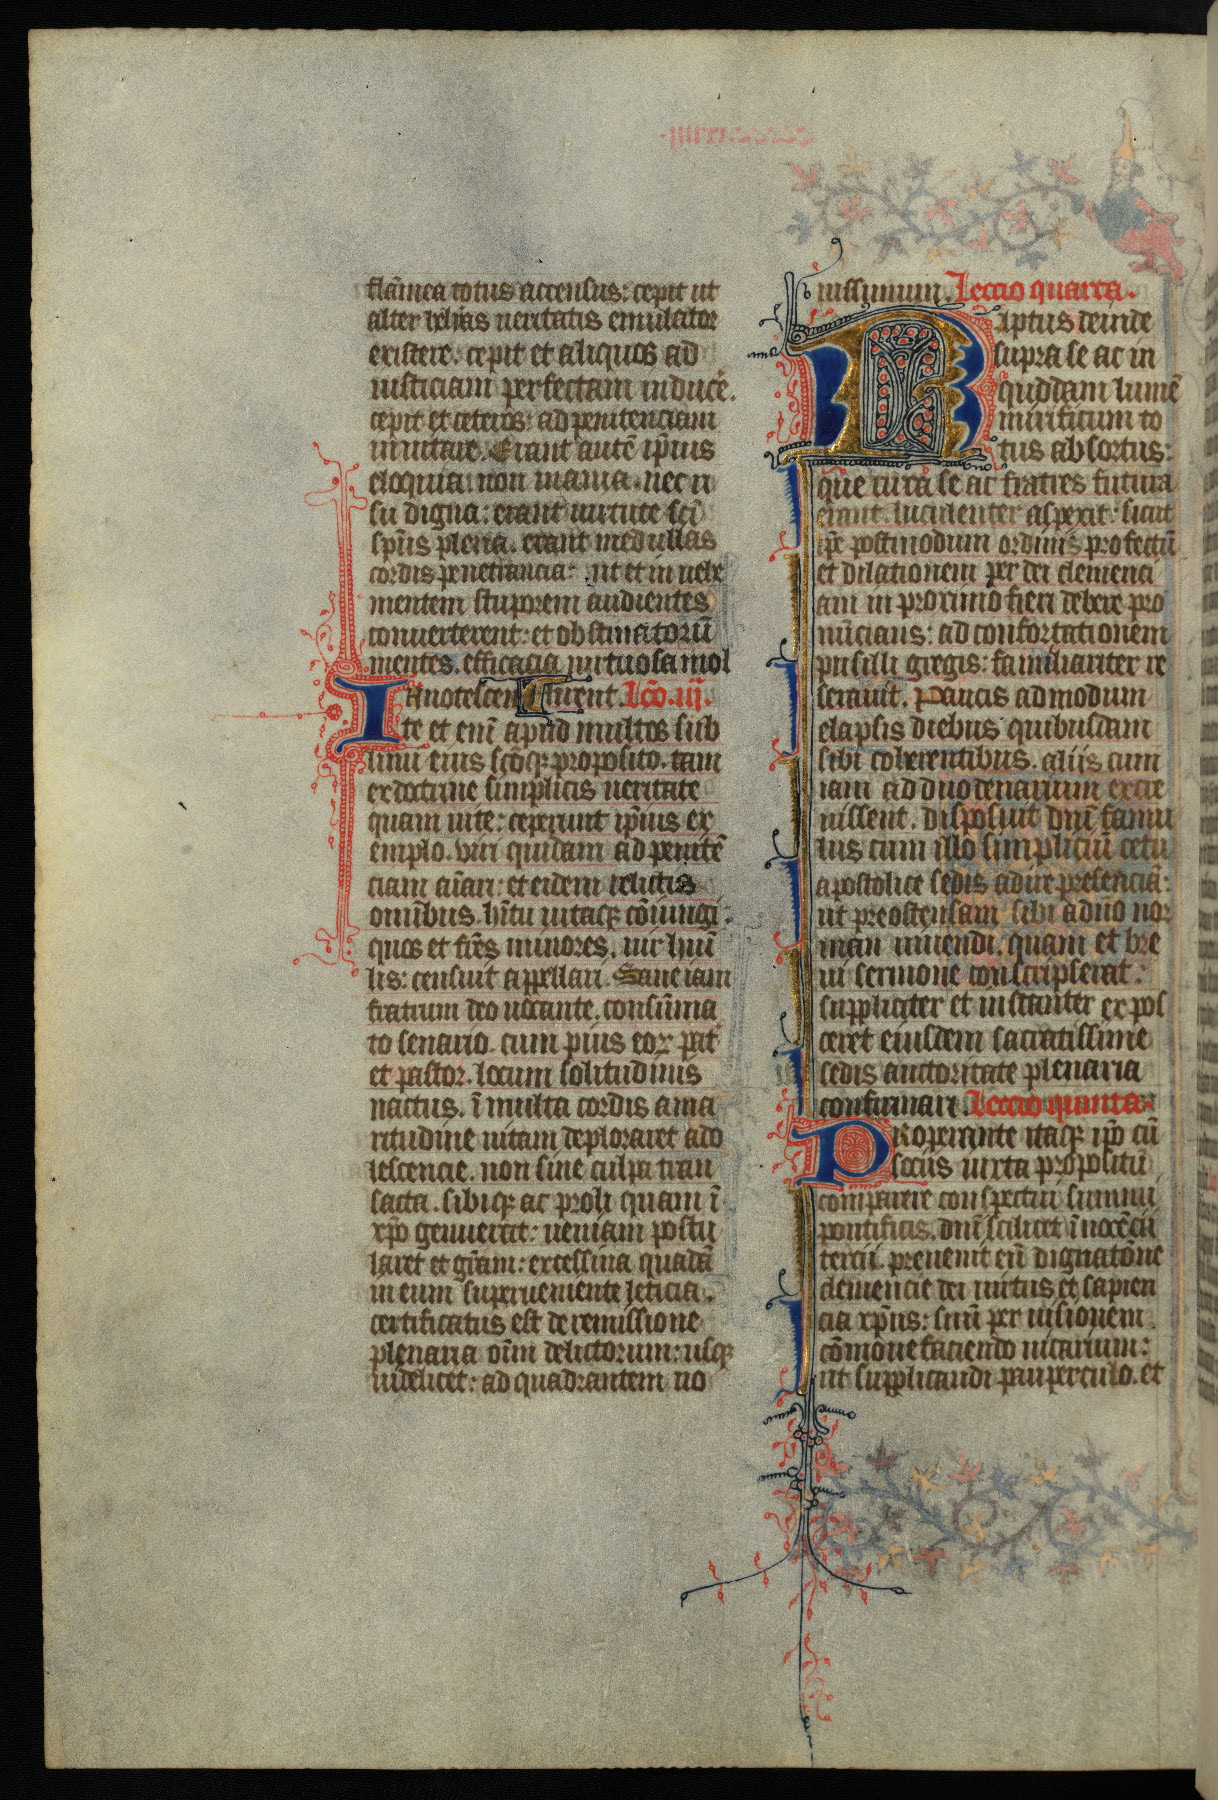 flãmea totus accensus: cepit ut
alter helyas ueritatis emulator
existere. cepit et aliquos ad
iusticiam perfectam inducẽ.
cepit et ceteros ad penitenciam
inuitare. Erant autẽ ip̃ius
eloquia. non inania. nec ri
su digna: erant uirtute sc̃i
sp̃us plena. erant medullas
cordis penetrancia: ut et in uehe
mentem stuporem audientes
conuerterent: et obstinatorũ
mentes. efficacia uirtuosa mol
lirent. Lc̃o. iij.
Innotescen
te et enĩ apud multos sub
limi eius sc̃oq; proposito. tam
ex doctrine simplicis ueritate
quam uite: ceperunt ip̃ius ex
emplo. viri quidam ad penitẽ
ciam aĩari: et eidem relictis
omĩbus. hĩtu uitaq; cõiungi.
quos et fr̃es minores. uir hũi
lis: censuit appellari. Sane iam
fratrum deo uocante. consũma
to senario. cum pius eoꝝ pat̃
et pastor. locum solitudinis
nactus. ĩ multa cordis ama
ritudine uitam deploraret ado
lescencie. non sine culpa tran
sacta. sibiq; ac proli quam ĩ
xp̃o genuerat: ueniam postu
laret et gr̃am: excessiua quadã
in eum superueniente leticia.
certificatus est de remissione
plenaria oĩm delictorum: usq;
uidelicet: ad quadrantem no
uissimum. Leccio quarta.
Raptus deinde
supra se ac in
quoddam lumẽ
mirificum to
tus absortus:
que circa se ac fratres futura
erant. luculenter aspexit: sicut
ip̃e postmodum ordinis profectũ
et dilationem per dei clemenci
am in proximo fieri debere pro
nũcians: ad confortationem
pusilli gregis: familiariter re
serauit. Paucis admodum
elapsis diebus quibusdam
sibi coherentibus. aliis cum
iam ad duodenarium excre
uissent. disposuit dñi famu
lus cum illo simpliciũ cetu
apostolice sedis adire presenciã:
ut preostensam sibi a dño nor
mam uiuendi. quam et bre
ui sermone conscripserat:
suppliciter et instanter expos
ceret eiusdem sacratissime
sedis auctoritate plenaria
confirmari. Leccio quinta.
Properante itaq; ip̃o cũ
sociis iuxta propositũ
comparere conspectui summi
pontificis. dñi scilicet ĩnocẽcii
tercii. preuenit eũ dignatõne
clemencie dei uirtus et sapien
cia xp̃us: suũ per uisionem.
cõmonefaciendo uicarium:
ut supplicandi pauperculo. et